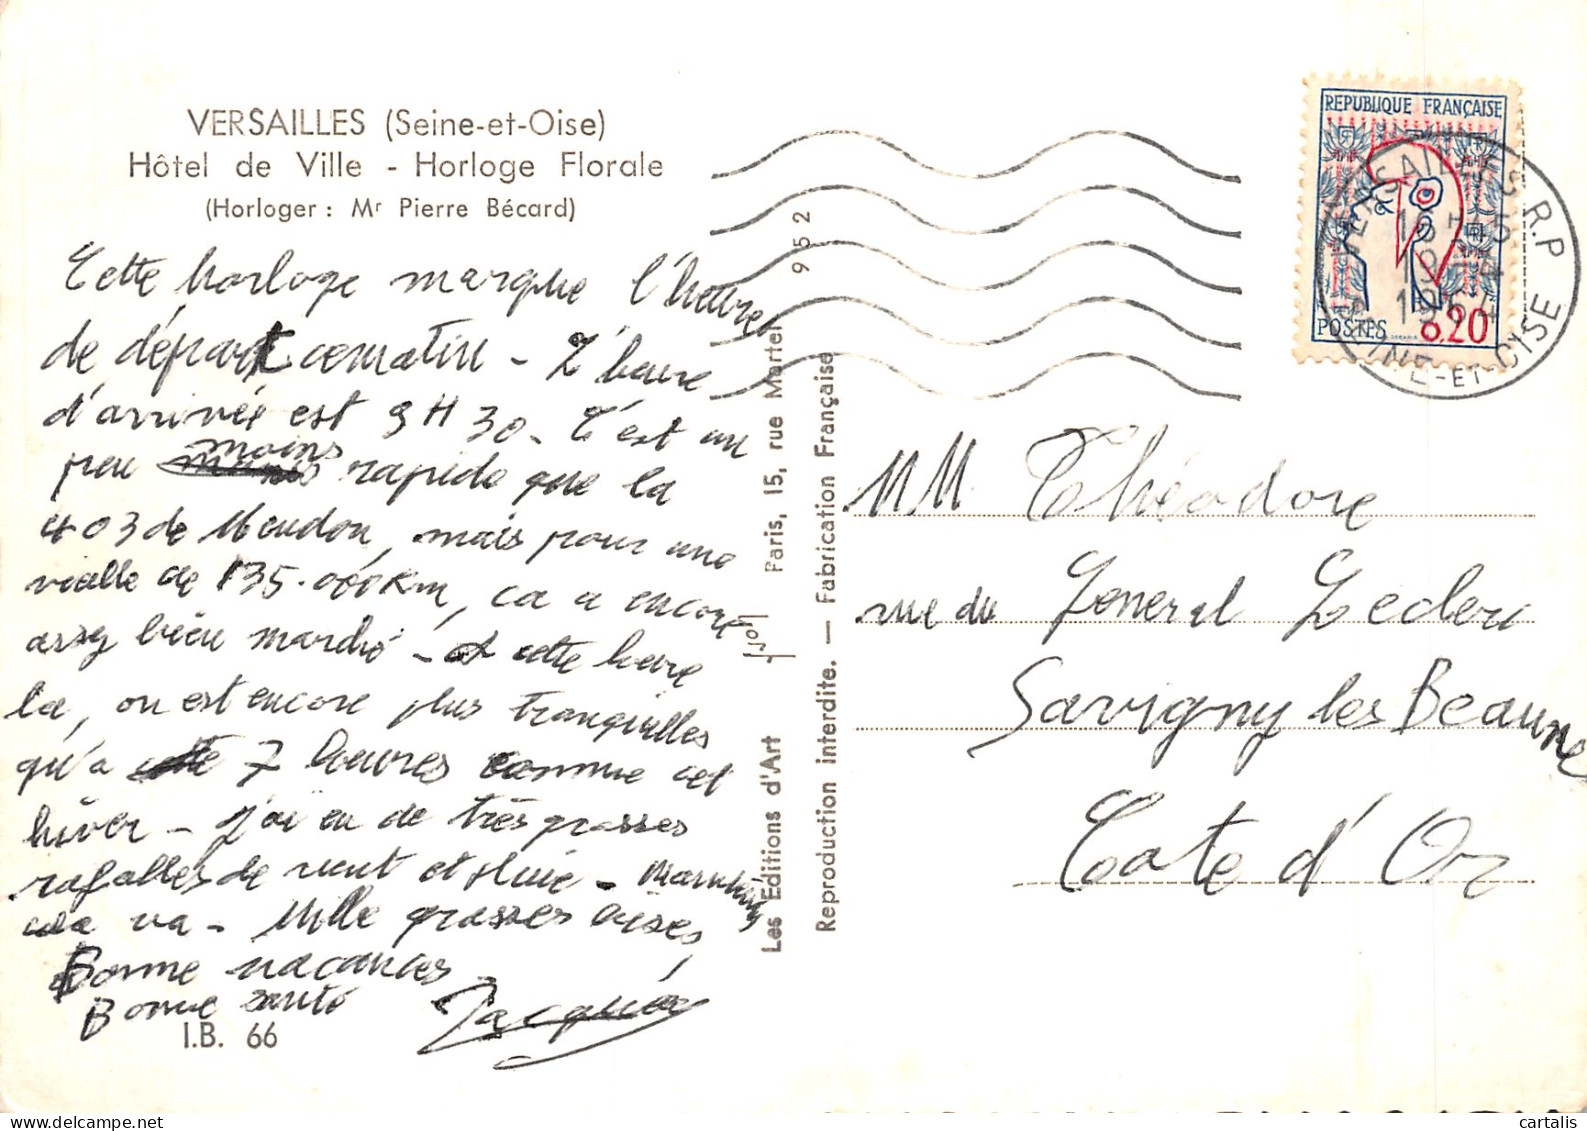 VERSAILLES (Seine-et-Oise)
Hôtel de Ville - Horloge Florale
(Horloger : Mr Pierre Bécard)
Cette horloge marque l'heure
de départ ce matin - L'heure
d'arrivée est 9H30 - C'est un
peu moins rapide que la
403 de Meudon, mais pour une
vieille de 135.000Km, ca a encore
assez bien marché - et cette heure
la, on est encore plus tranquilles
qu'a 7 heures comme cet
hiver - J'ai eu de très grosses
rafalles de vent et pluie - Maintenant
va - Mille grosses bises,
Bonne vacances
Bonne santé
Jacques
I.B. 66
Les Editions d'Art Yvon Paris, 15, rue Martel 952
Reproduction interdite. — Fabrication Française
REPUBLIQUE FRANÇAISE
POSTES 0,20
VERSAILLES R.P
SEINE-ET-OISE
MM Théodore
rue du General Leclerc
Savigny les Beaune
Cote d'Or
cartalis